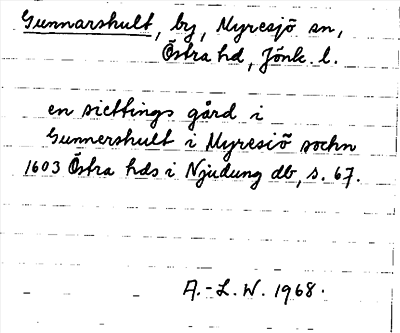 Gunnarshult, by, Myresjö sn,
Östra hd, Jönk. l.
en siettings gård i
Gunnershult i Myresiö sochn
1603 Östra hds i Njudung db, s. 67.
A.-L.W. 1968.